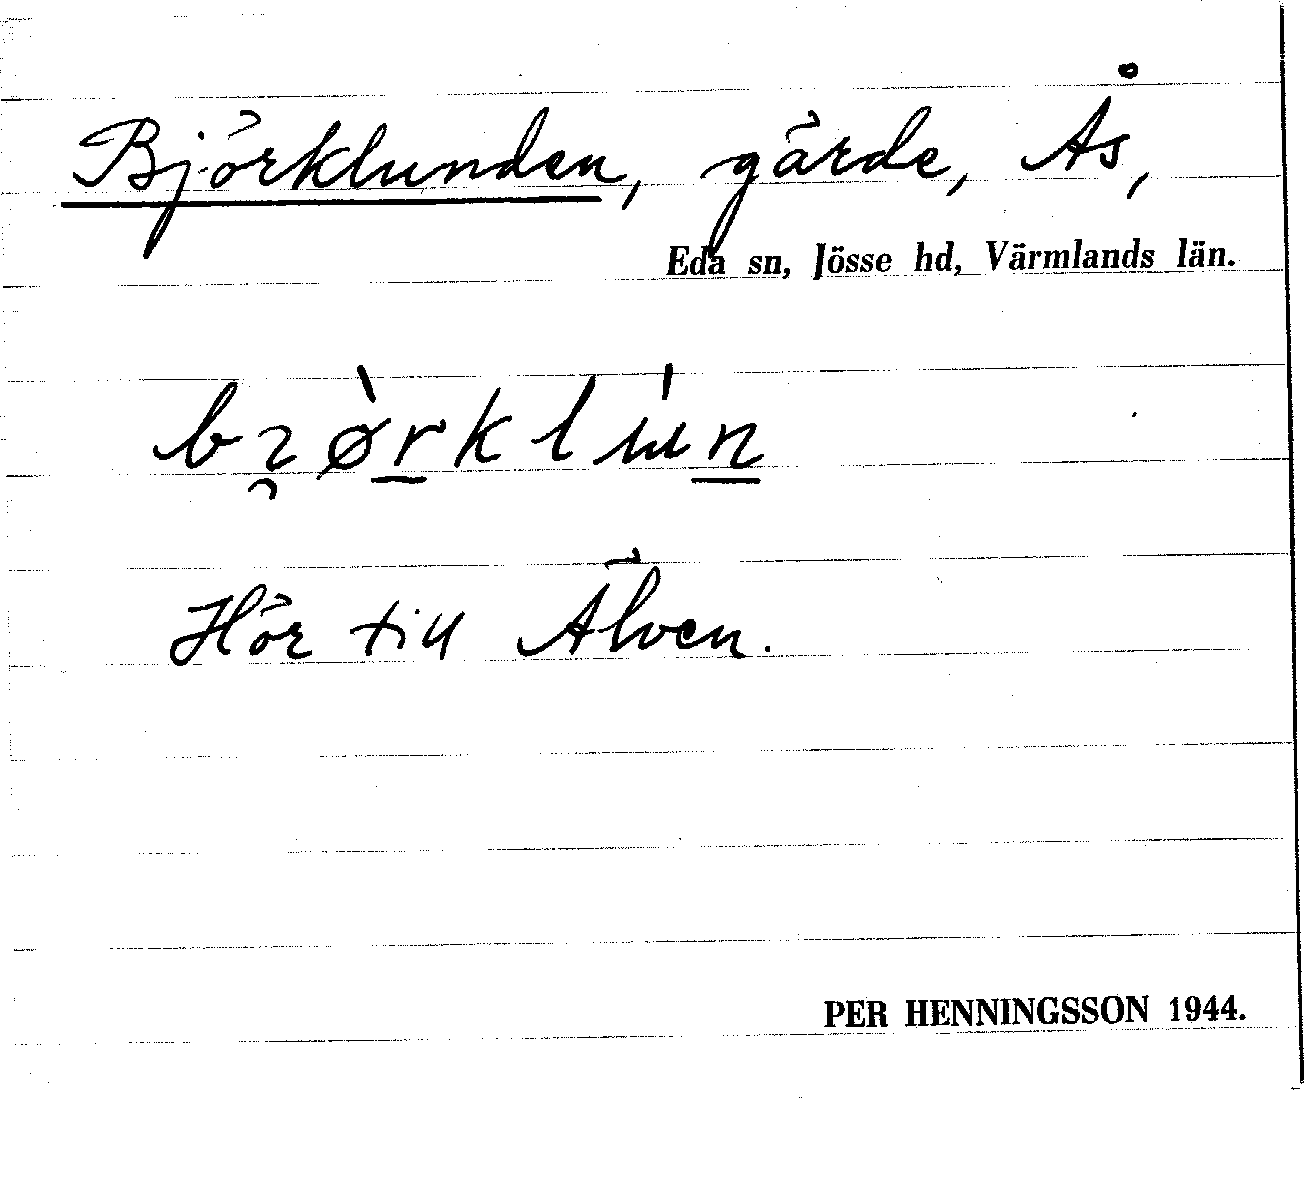 Björklunden, gärde, Ås,
Eda sn, Jösse hd, Värmlands län.
Hör till Älven.
PER HENNINGSSON 1944.